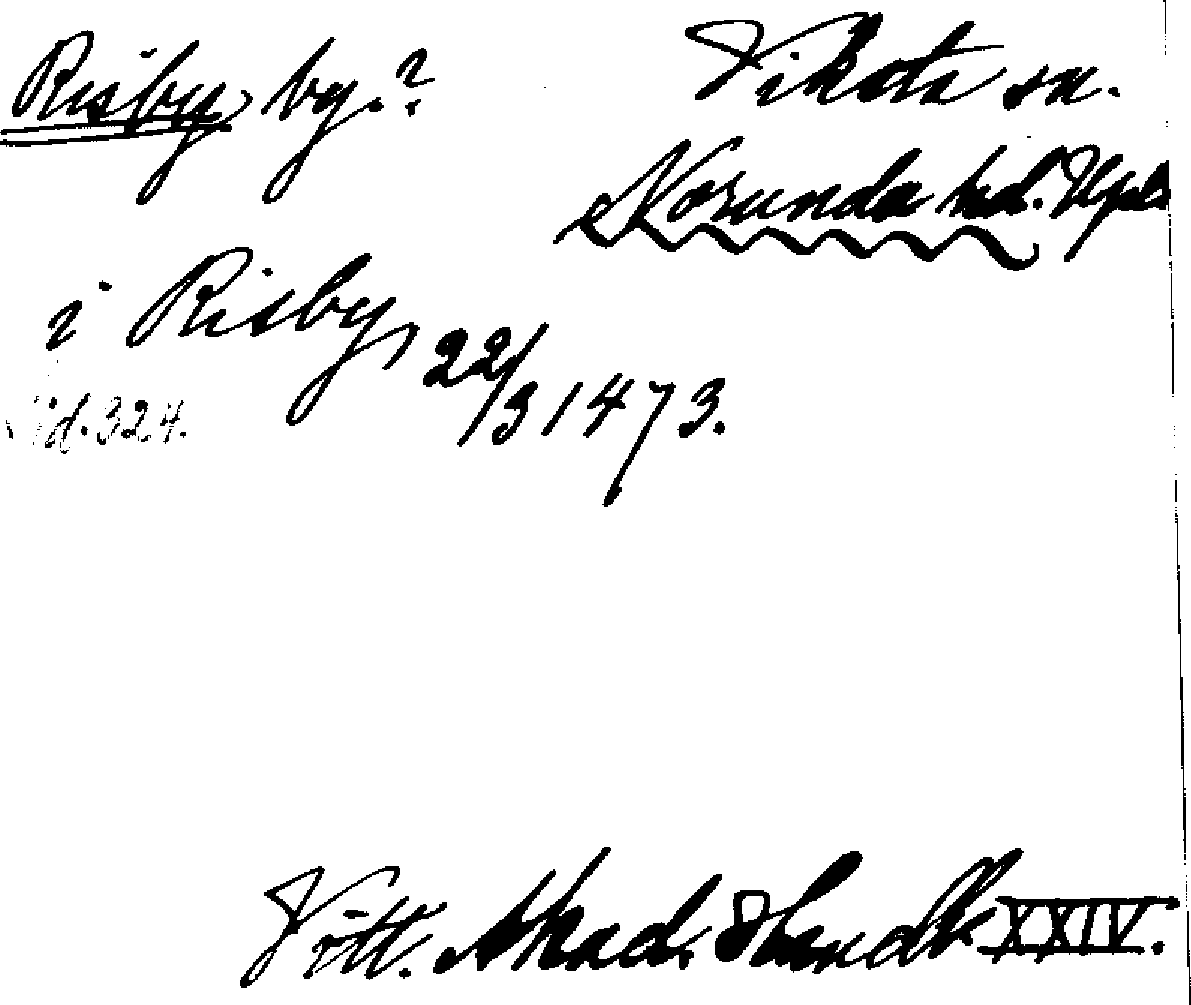 Risby by.?
Viksta sn.
Norunda hd. Upl.
i Risby, 22/3 1473.
sid. 324.
Vitt. Akad. Handl. XXIV.